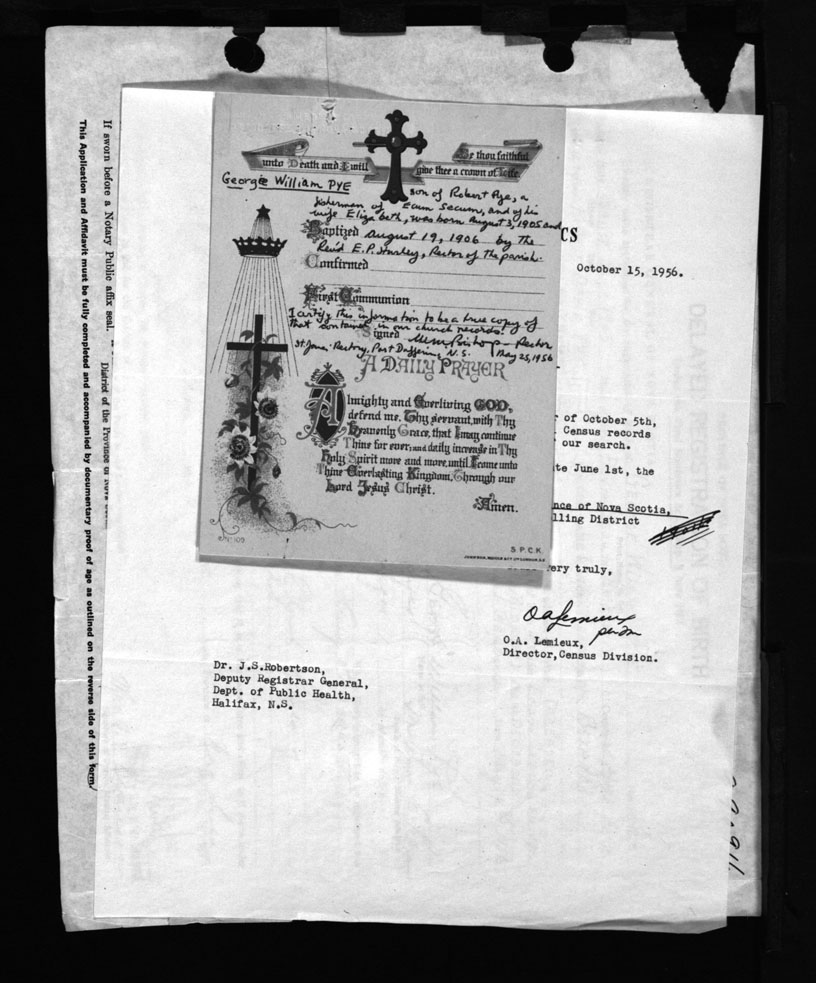 Be thou faithful
unto Death and I will give thee a crown of Life.
George William PYE son of Robert Pye, a
fisherman of Ecum Secum, and of his
wife Elizabeth, was born August 3, 1905 and
Baptized August 19, 1906 by the
Rev'd E.P. Hurley, Rector of the parish.
Confirmed
First Communion
I certify this information to be a true copy of
that contained in our church records.
Signed Rector
St. James Rectory, Port Dufferin, N.S. May 25, 1956
A DAILY PRAYER
Almighty and Everliving GOD,
defend me, Thy servant, with Thy
Heavenly Grace, that I may continue
Thine for ever; and daily increase in Thy
Holy Spirit more and more, until I come unto
Thine Everlasting Kingdom, Through our
Lord Jesus Christ.
Amen.
S.P.C.K.
CS
October 15, 1956.
r of October 5th,
Census records
our search.
te June 1st, the
nce of Nova Scotia,
lling District
ery truly,
OA Lemieux
O.A. Lemieux,
Director,Census Division.
Dr. J.S.Robertson,
Deputy Registrar General,
Dept. of Public Health,
Halifax, N.S.
If sworn before a Notary Public affix seal.
District of the Province of Nova
This Application and Affidavit must be fully completed and accompanied by documentary proof of age as outlined on the reverse side of this form.